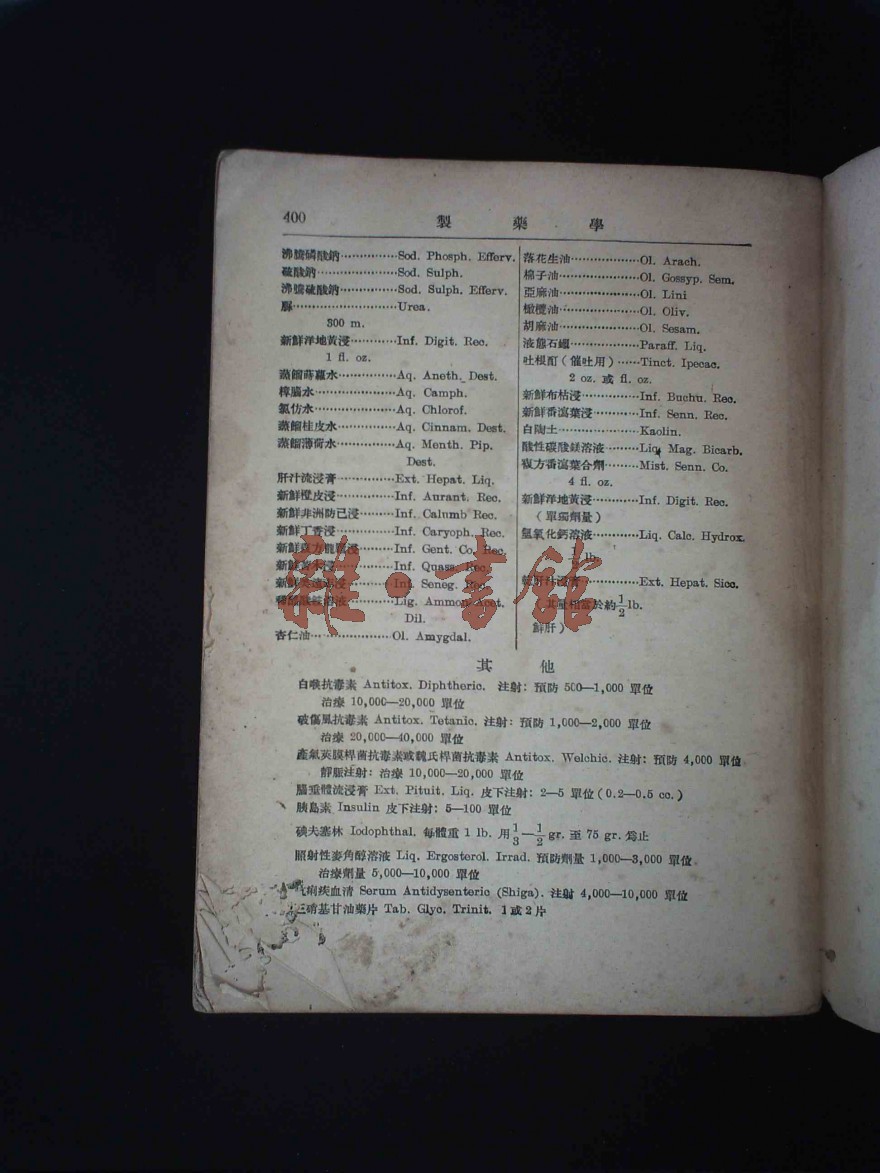 400
製藥學
沸騰磷酸鈉……………Sod. Phosph. Efferv.
硫酸鈉……………Sod. Sulph.
沸騰硫酸鈉……………Sod. Sulph. Efferv.
脲……………Urea.
300 m.
新鮮洋地黃浸…………Inf. Digit. Rec.
1 fl. oz.
蒸餾蒔蘿水……………Aq. Aneth. Dest.
樟腦水……………Aq. Camph.
氯仿水……………Aq. Chlorof.
蒸餾桂皮水……………Aq. Cinnam. Dest.
蒸餾薄荷水……………Aq. Menth. Pip.
Dest.
肝汁流浸膏……………Ext. Hepat. Liq.
新鮮橙皮浸……………Inf. Aurant. Rec.
新鮮非洲防已浸………Inf. Calumb Rec.
新鮮丁香浸……………Inf. Caryoph. Rec.
新鮮複方龍膽浸………Inf. Gent. Co. Rec.
新鮮苦木浸……………Inf. Quass. Rec.
新鮮浸……………Inf. Seneg. Rec.
溶液……………Lig. Ammon Acet.
Dil.
杏仁油……………Ol. Amygdal.
落花生油………………Ol. Arach.
棉子油………………Ol. Gossyp. Sem.
亞麻油………………Ol. Lini
橄欖油………………Ol. Oliv.
胡麻油………………Ol. Sesam.
液態石蠟………………Paraff. Liq.
吐根酊（催吐用）……Tinct. Ipecac.
2 oz. 或 fl. oz.
新鮮布枯浸……………Inf. Buchu. Rec.
新鮮番瀉葉浸…………Inf. Senn. Rec.
白陶土………………Kaolin.
酸性碳酸鎂溶液………Liq. Mag. Bicarb.
複方番瀉葉合劑………Mist. Senn. Co.
4 fl. oz.
新鮮洋地黃浸…………Inf. Digit. Rec.
（單獨劑量）
氫氧化鈣溶液…………Liq. Calc. Hydrox.
lb.
乾肝汁浸膏……………Ext. Hepat. Sicc.
其量相當於約1/2 lb.
鮮肝）
其他
白喉抗毒素 Antitox. Diphtheric. 注射：預防 500—1,000 單位
治療 10,000—20,000 單位
破傷風抗毒素 Antitox. Tetanic. 注射：預防 1,000—2,000 單位
治療 20,000—40,000 單位
產氣莢膜桿菌抗毒素或魏氏桿菌抗毒素 Antitox. Welchic. 注射：預防 4,000 單位
靜脈注射：治療 10,000—20,000 單位
腦垂體流浸膏 Ext. Pituit. Liq. 皮下注射：2—5 單位（0.2—0.5 cc.）
胰島素 Insulin 皮下注射：5—100 單位
碘夫塞林 Iodophthal. 每體重 1 lb. 用 1/3—1/2 gr. 至 75 gr. 爲止
照射性麥角醇溶液 Liq. Ergosterol. Irrad. 預防劑量 1,000—3,000 單位
治療劑量 5,000—10,000 單位
抗痢疾血清 Serum Antidysenteric (Shiga). 注射 4,000—10,000 單位
三硝基甘油藥片 Tab. Glyc. Trinit. 1 或 2 片
雜·書館